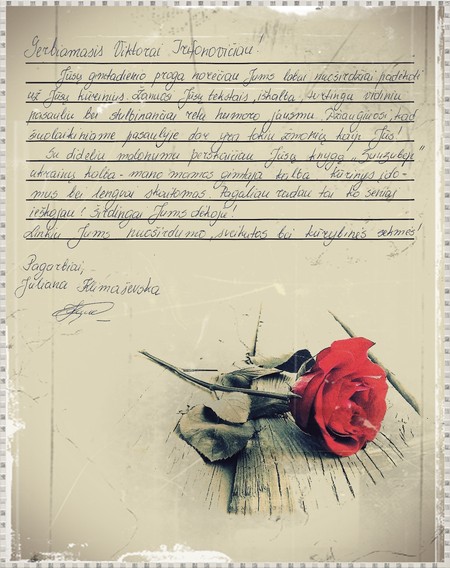 Gerbiamasis Viktorai Trifonovičiau!
Jūsų gimtadienio proga norėčiau Jums labai nuoširdžiai padėkoti
už Jūsų kūrinius. Žaviuos Jūsų tekstais, iškalba, turtingu vidiniu
pasauliu bei stulbinančiai retu humoro jausmu. Džiaugiuosi, kad
šiuolaikiniame pasaulyje dar yra tokių žmonių kaip Jūs!
Su dideliu malonumu perskaičiau Jūsų knygą
ukrainų kalba - mano mamos gimtąja kalba. Kūrinys įdo-
mus bei lengvai skaitomas. Pagaliau radau tai ko seniai
ieškojau! Širdingai Jums dėkoju!
Linkiu Jums nuoširdumo, sveikatos bei kūrybinės sėkmės!
Pagarbiai,
Juliana Klimaševska